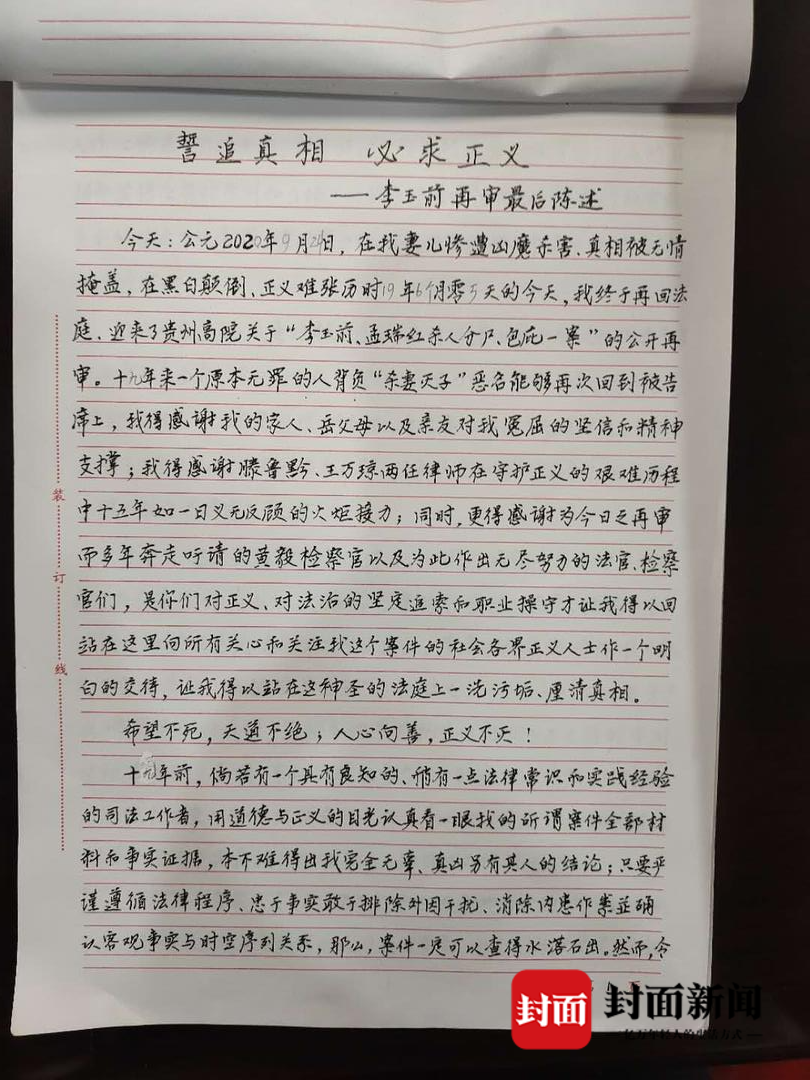 誓追真相 必求正义
——李玉前再审最后陈述
今天:公元2020年9月24日,在我妻儿惨遭凶魔杀害、真相被无情
掩盖,在黑白颠倒、正义难张历时19年6个月零5天的今天,我终于再回法
庭、迎来了贵州高院关于“李玉前、孟瑞红杀人分尸、包庇一案”的公开再
审。十九年来一个原本无罪的人背负“杀妻灭子”恶名能够再次回到被告
席上,我得感谢我的家人、岳父母以及亲友对我冤屈的坚信和精神
支撑;我得感谢滕鲁黔、王万琼两任律师在守护正义的艰难历程
中十五年如一日义无反顾的火炬接力;同时,更得感谢为今日之再审
而多年奔走吁请的黄毅检察官以及为此作出无尽努力的法官、检察
官们,是你们对正义、对法治的坚定追索和职业操守才让我得以回
站在这里向所有关心和关注我这个案件的社会各界正义人士作一个明
白的交待,让我得以站在这神圣的法庭上一洗污垢、厘清真相。
希望不死,天道不绝;人心向善,正义不灭!
十九年前,倘若有一个具有良知的、稍有一点法律常识和实践经验
的司法工作者,用道德与正义的目光认真看一眼我的所谓案件全部材
料和事实证据,本不难得出我完全无辜、真凶另有其人的结论;只要严
谨遵循法律程序、忠于事实敢于排除外因干扰、消除内患作祟並确
认客观事实与时空序列关系,那么,案件一定可以查得水落石出。然而,令
装
订
线
封面
封面新闻
亿万年轻人的生活方式